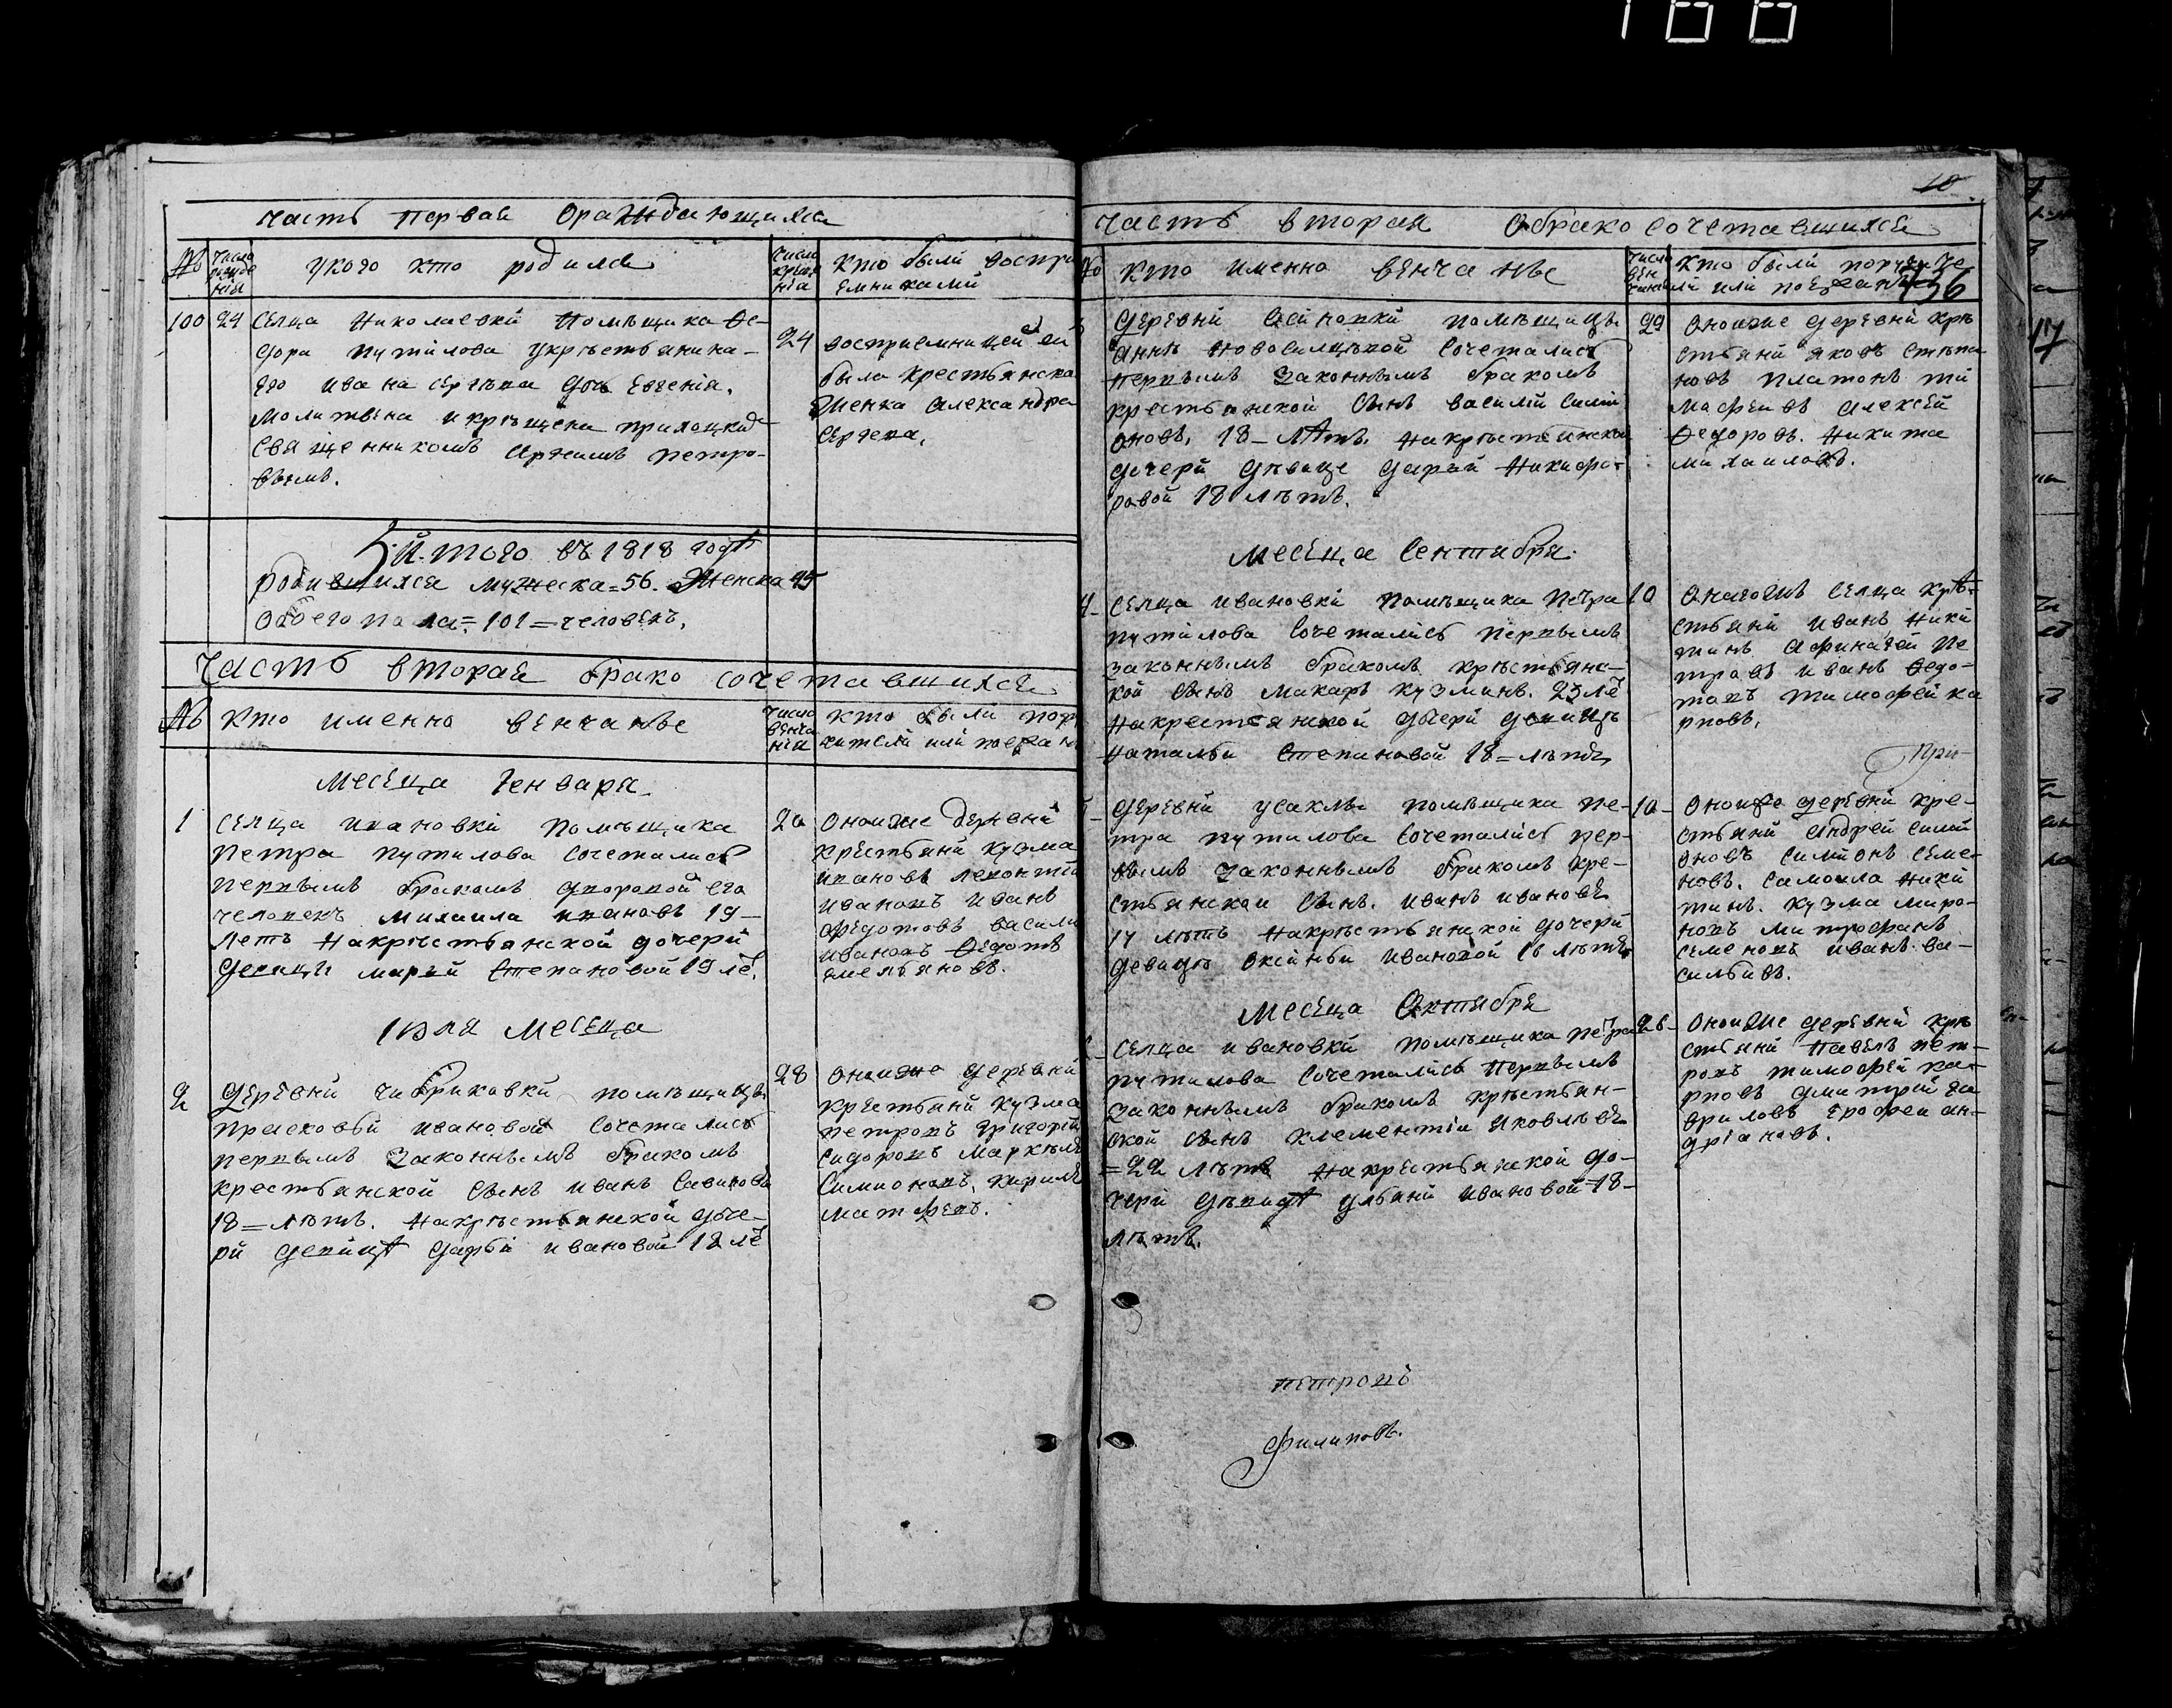 166
часть первая ораждающихся
№ число рожде нія у кого кто родился число креще нія кто были воспри
емниками
100 24 сельца николаевки помѣщика Ѳе-
дора путилова укрѣстьянина-
его ивана сергѣева дочь Евгенія.
молитвена и крѣщена приходцкиде
священникомъ
петро-
вымъ.
24 восприемницей ей
была крестьянска
женка александра
сергева,
И того въ 1818 годѣ
родившихся мужеска=56. Женска 45
обоего пола=101=человекъ.
часть вторая брако сочетавшихся
№ кто именно венчаные число венча нія кто были пору
чители или поезжаны
месеца Генваря
1 сельца ивановки помѣщика
петра путилова сочетались
первымъ бракомъ дворовой его
человекъ михаила ивановъ 19-
летъ накрѣстьянской дочери
девицы марьи степановой 19 ле.
20 оноиже деревни
крестьяни кузма
ивановъ леонтий
ивановъ иванъ
федотовъ васили
ивановъ Ѳедотъ
емельяновъ.
Іюля месеца
2 деревни чибриковки помѣщицы
прасковьи ивановой сочетались
первымъ законнымъ бракомъ
крестьянской сынъ иванъ савиновъ
18=лѣтъ. накрѣстьянской доче-
ри девицѣ дарьи ивановой 18 ле
28 оноиже деревни
крестьяни кузма
петровъ григорий
сидоровъ
симионовъ, кирилъ
матвеевъ.
10
часть вторая обрако сочетавшихся
№ кто именно венчаные число вен чания кто были поручите
ли или поезжаны
436
деревни помѣщицы
анны новосилцькой сочетались
первымъ законнымъ бракомъ
крестьянской сынъ василий сими
оновъ, 18-лѣтъ. накрѣстьянской
дочери дѣвице дарьи никифо-
ровой 18 лѣтъ.
29 оноиже деревни крѣ
стьяни яковъ степа
новъ платонъ ти
мафеивъ алексей
Ѳедоровъ. никита
михаиловъ.
месеца Сентября
4 сельца ивановки помѣщика петра
путилова сочетались первымъ
законнымъ бракомъ крѣстьянс-
кой сынъ макаръ кузминъ. 23 ле
накрестьянской дочери девицѣ
натальи степановой 18=лѣтъ
10 оногожъ сельца крѣ-
стьяни иванъ ники
тинъ афинагей пе
тровъ иванъ Ѳедо-
товъ тимофей ка
рповъ,
При-
5 деревни усаклы помѣщика пе-
тра путилова сочетались пер-
вымъ законнымъ бракомъ кре-
стьянской сынъ. иванъ ивановъ
17 лѣтъ накрѣстьянской дочери
девицѣ оксиньи ивановой 16 лѣтъ
10- оноиже деревни кре-
стьяни андрей сими
оновъ симионъ семе-
новъ. самоила ники
тинъ. кузма миро-
новъ митрофанъ
семеновъ иванъ ва-
сильивъ.
месеца Октября
сельца ивановки помѣщика петра
путилова сочетались первымъ
законнымъ бракомъ крѣстьян-
ской сынъ клементіи яковлевъ
=22 лѣтъ накрестьянской до-
чери дѣвицѣ ульяни ивановой-18-
лѣтъ.
26- оноиже деревни крѣ
стьяни павелъ пет-
ровъ тимофей ка-
рповъ дмитрий га
вриловъ ерофеи ан-
дріановъ.
петровъ
Филиповъ.